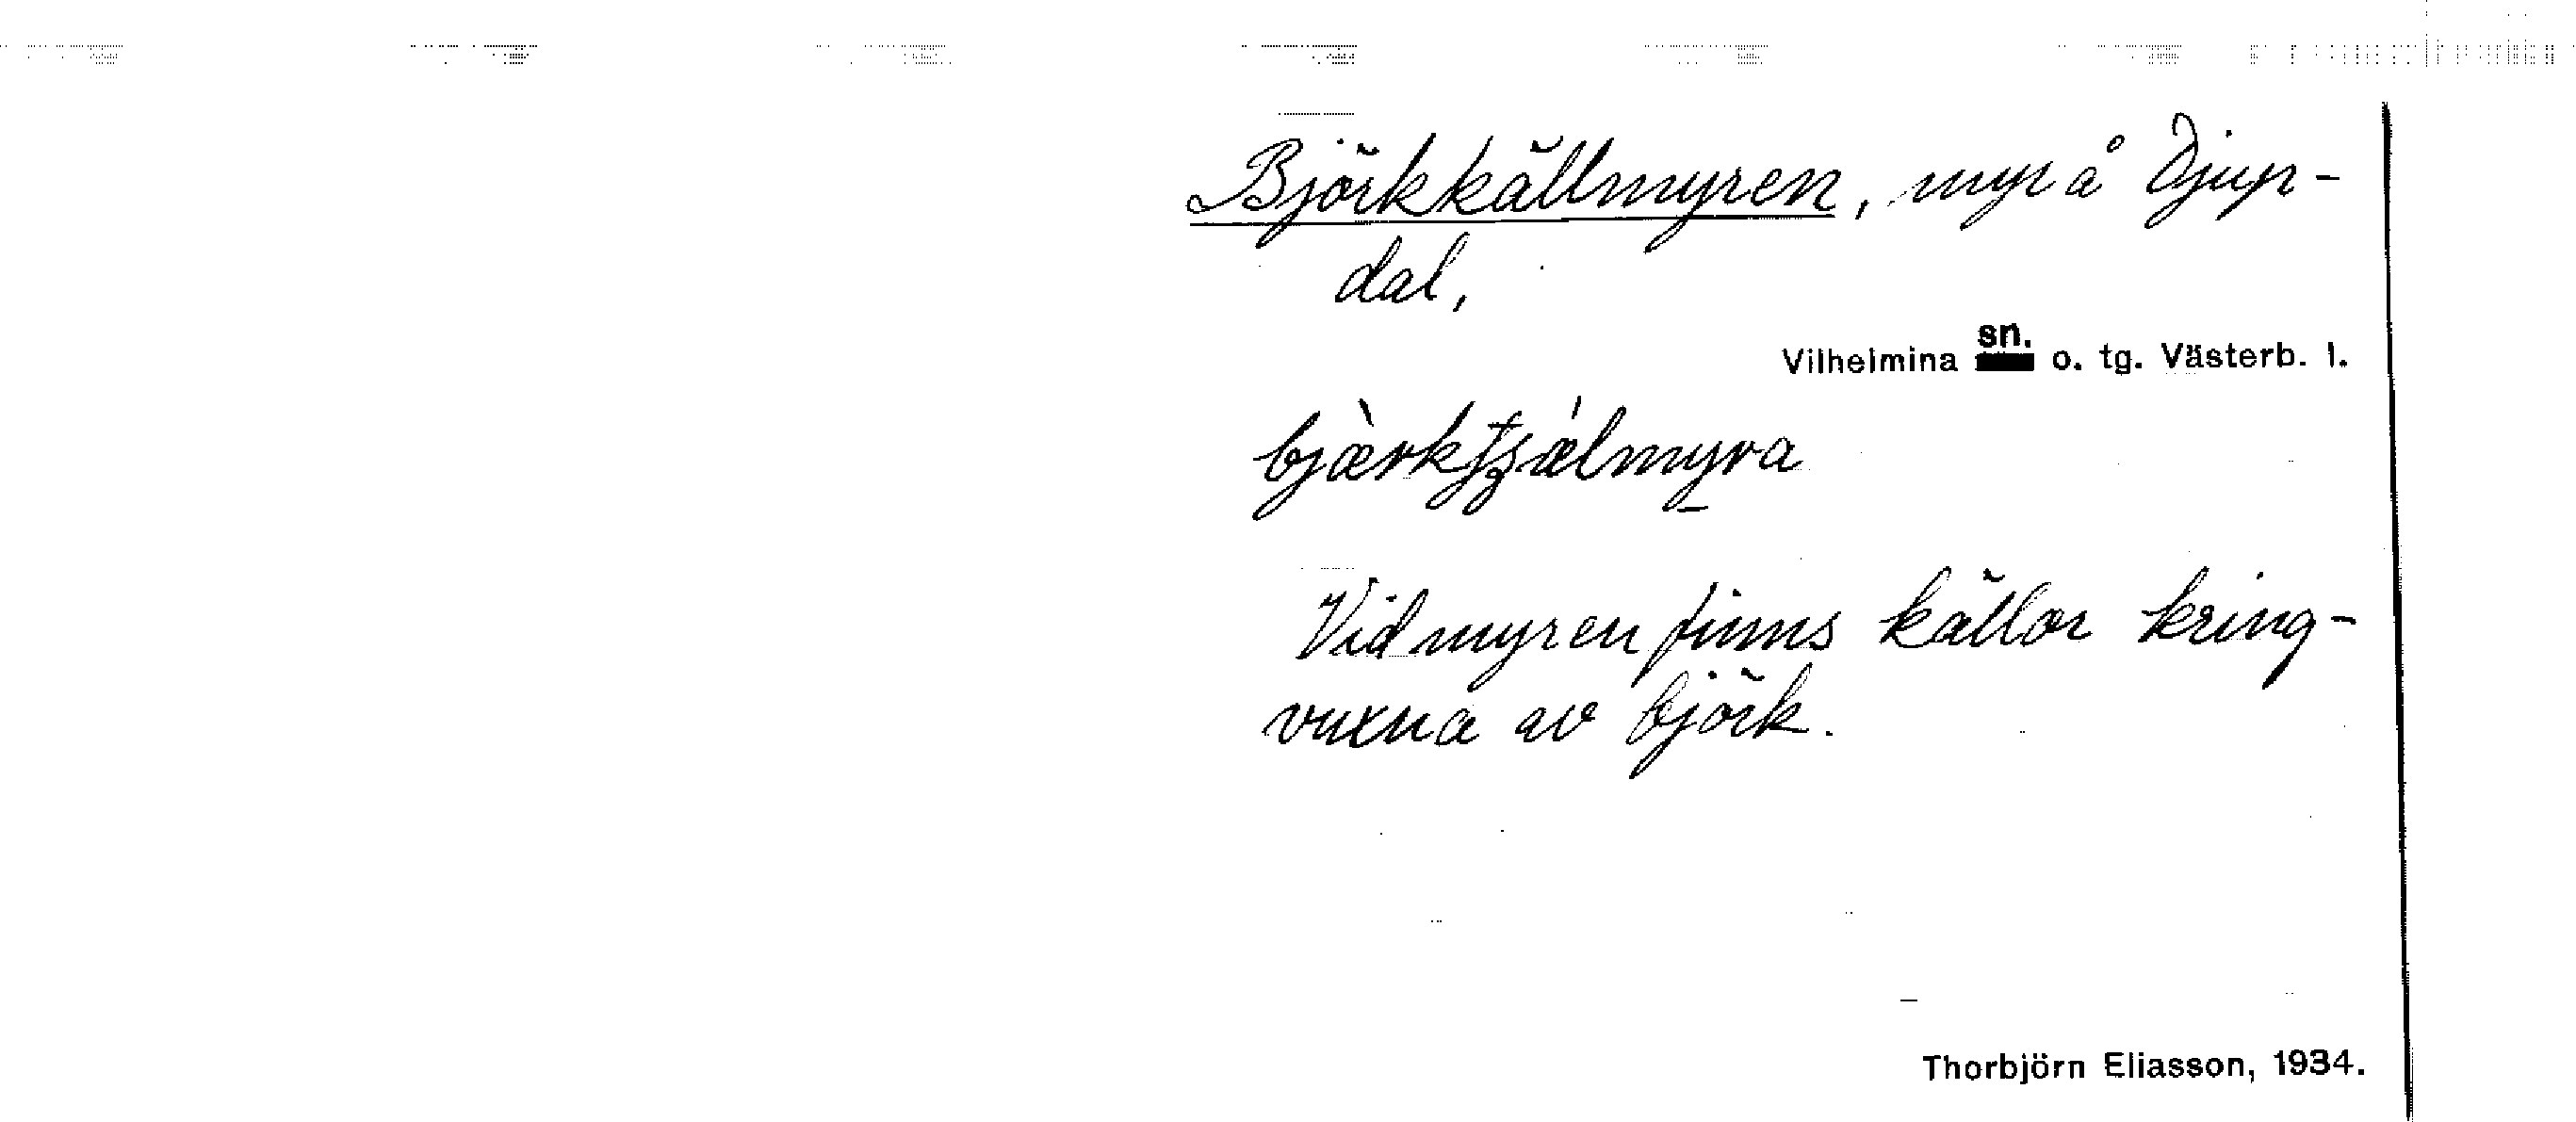 Björkkällmyren, myr å Djup-
dal,
Vilhelmina sn. o. tg. Västerb. l.
bjæ̀rkʈʂǽlmyra
Vid myren finns källor kring-
vuxna av björk.
Thorbjörn Eliasson, 1934.